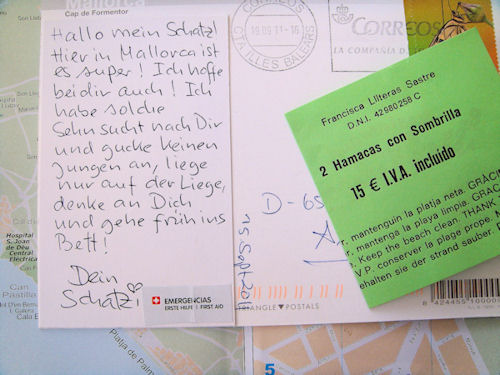 Mallorca
Cap de Formentor
Hallo mein Schatz!
Hier in Mallorca ist
es super! Ich hoffe
bei dir auch! Ich
habe solche
Sehnsucht nach Dir
und gucke keinen
Jungen an, liege
nur auf der Liege,
denke an Dich
und gehe früh ins
Bett!
Dein
Schatzi
EMERGENCIAS
ERSTE HILFE | FIRST AID
TRIANGLE POSTALS
18 09 11 - 16
CTA ILLES BALEARS
CORREOS
LA COMPAÑIA DE
Francisca Lliteras Sastre
D.N.I. 42980258 C
2 Hamacas con Sombrilla
15 € I.V.A. incluido
mantenguin la platja neta. GRÀCI
mantenga la playa limpia. GRAC
Keep the beach clean. THANK
V.P. conserver la plage propre.
ehalten sie der strand sauber. D
D-65
15 Sept 201
8 424455 10000
Hospital
S. Joan
de Déu
Central
Electrica
Can
Pastilla
Platja de Palm
5